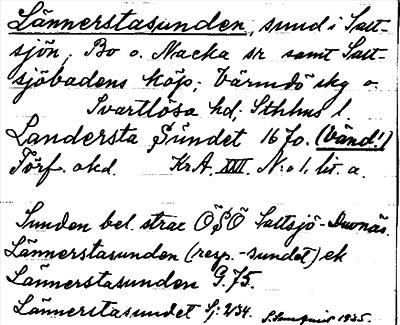 Lännerstasunden, sund i Salt-
sjön, Bo o. Nacka sr samt Salt-
sjöbadens köp; Värmdö skg o.
Svartlösa hd, Sthlms l.
Landersta Sundet 1670. (Vänd!)
Förf. okd. KrA. XXII. N:o 1, lit. a.
Sunden bel. strax ÖSÖ Saltsjö-Duvnäs.
Lännerstasunden (resp. -sundet) ek
Lännerstasunden G. 75.
Lännerstasundet Sj: 234. 1935.